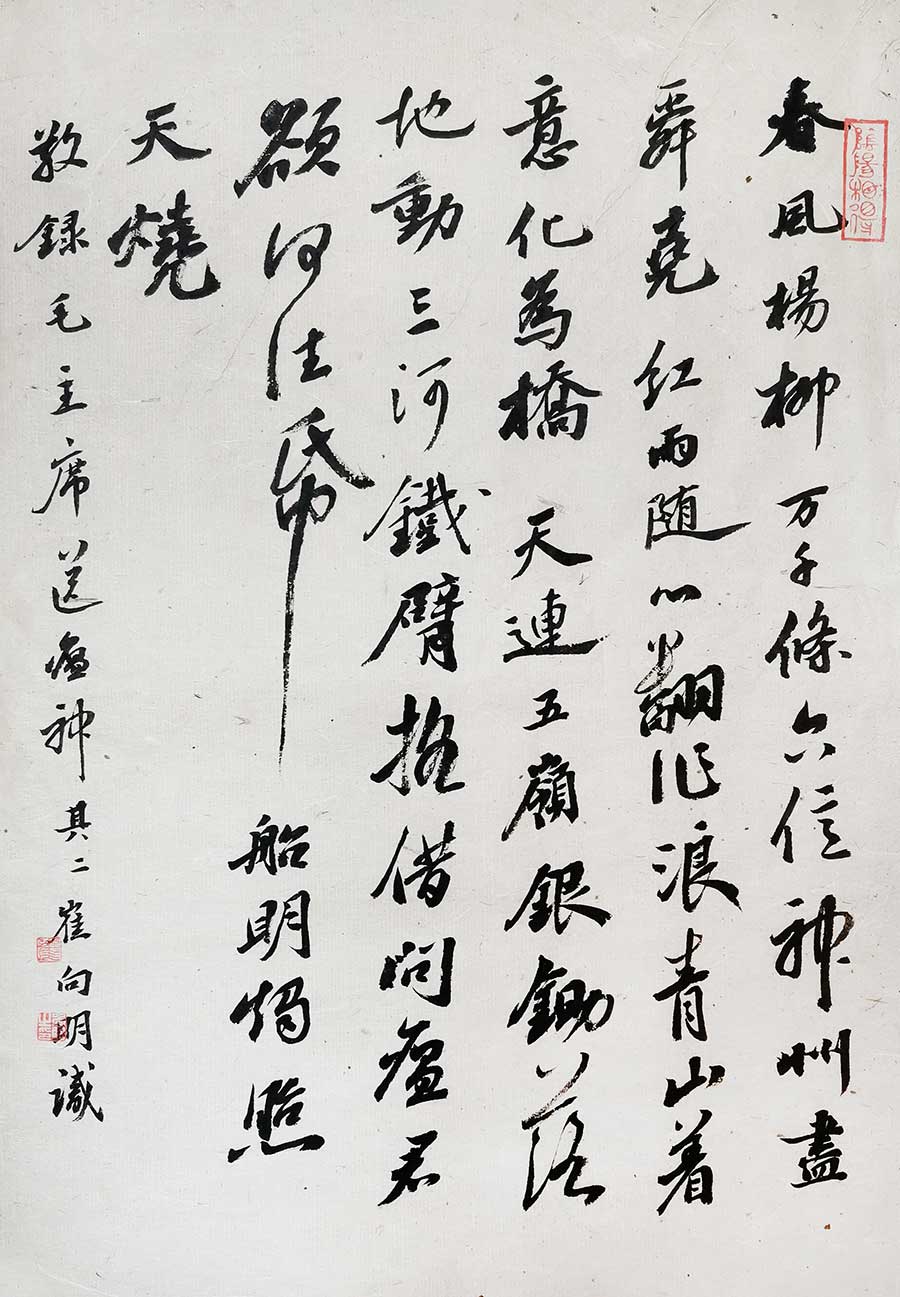 春風楊柳万千條六億神州盡
舜堯红雨随心翻作浪青山着
意化為橋天連五嶺銀鋤落
地動三河鐵臂摇借問瘟君
欲何往帋船明燭照
天燒
敬録毛主席送瘟神其二崔向明識